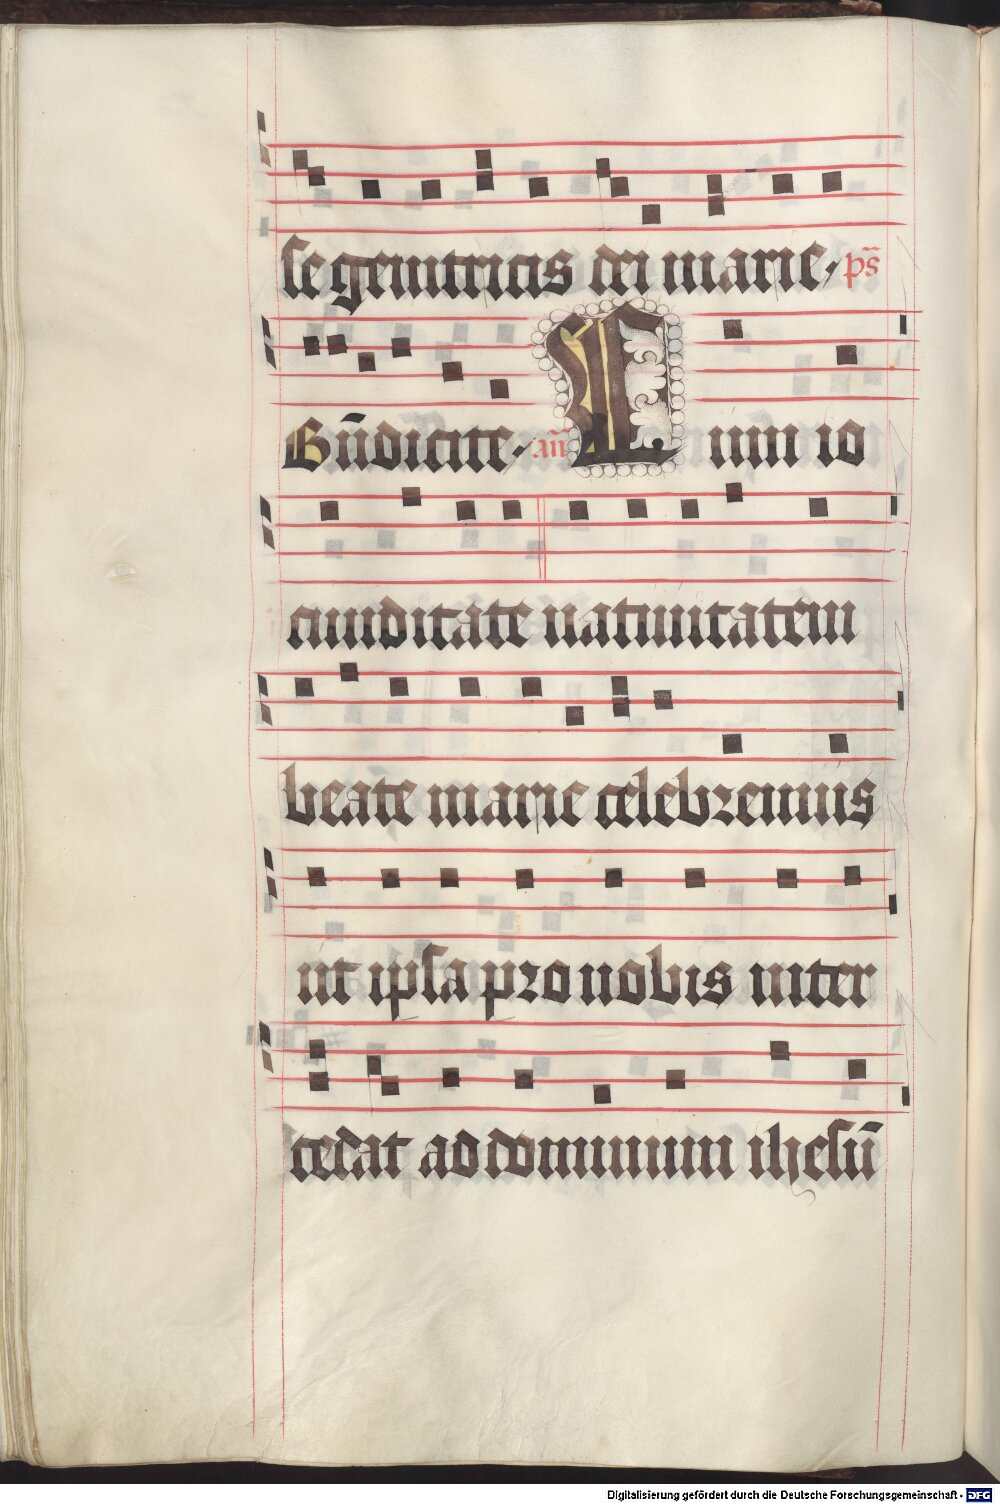 se genitricis dei marie. p̄s
Bn̄dicite. an̄ Cum io
cunditate natiuitatem
beate marie celebremus
ut ipsa pro nobis inter
cedat ad dominum ihesū
Digitalisierung gefördert durch die Deutsche Forschungsgemeinschaft - DFG